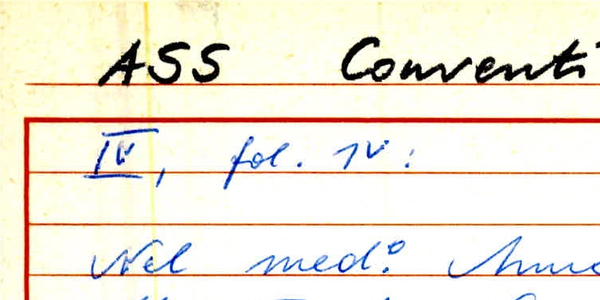 ASS Conventi
IV, fol. 1v:
Nel med:º